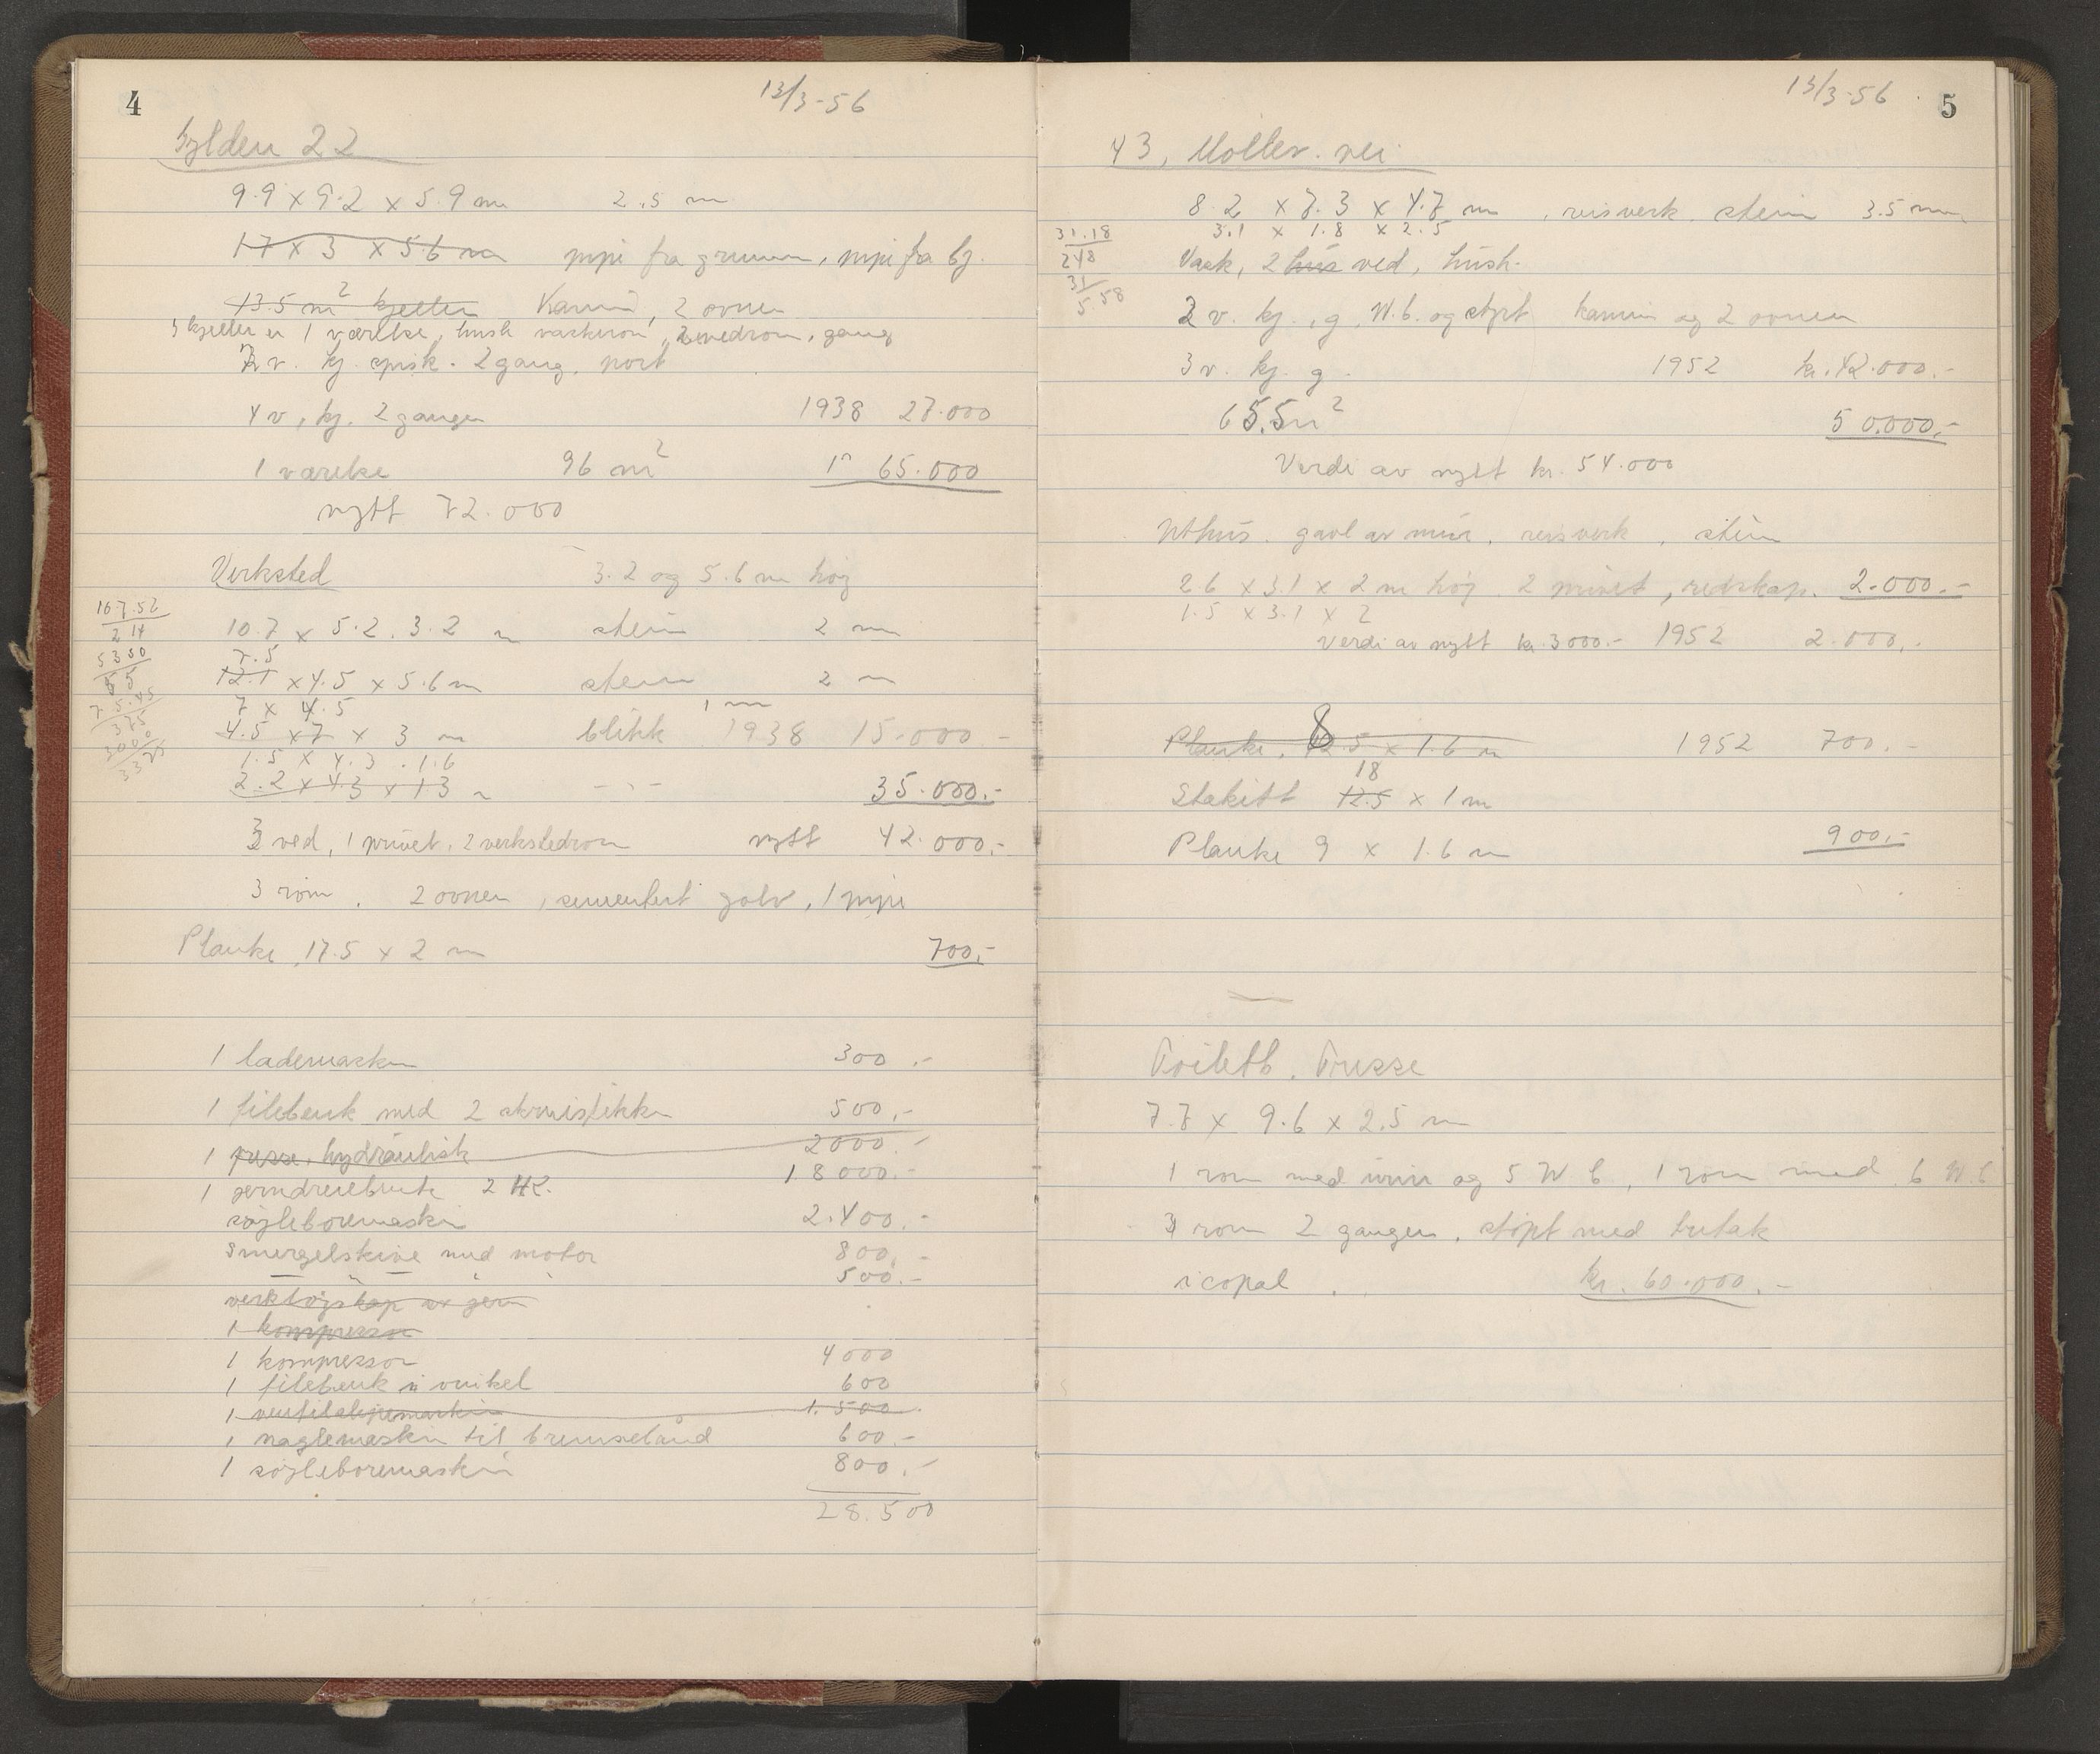 4
13/3-56
Gylden 22
9.9 x 9.2 x 5.9 m 2.5 m
17 x 3 x 5.6 m pipi fra grunnen, pipi fra kj.
13.5 m² kjeller Kamin, 2 ovner
I kjeller er 1 værelse, hush vaskerom, 2 vedrom, gang
3 v. kj. spisk. 2 gang. port
4 v, kj. 2 ganger 1938 27.000
1 værelse 96 m² 65.000
nytt 72.000
Verksted 3.2 og 5.6 m høg
10.7.52
214
5350
10.7 x 5.2. 3.2 m stein 2 m
7.5
12.1 x 4.5 x 5.6 m stein 2 m
7 x 4.5 1 m
4.5 x 7 x 3 m blikk 1938 15.000 -
1.5 x 4.3 . 1.6
2.2 x 4.3 x 1.3 m 35.000.-
3 ved, 1 privet, 2 verkstedrom nytt 42.000.-
3 rom. 2 ovner, sementert golv, 1 pipi
Planke 17.5 x 2 m 700.-
1 lademaskin 300.-
1 filebenk med 2 skruistikker 500.-
1 presse, hydraulisk 2000.-
1 jerndreiebenk 2 HK. 18000.-
søjleboremaskin 2.400.-
Smergelskive med motor 800.-
500.-
verktøjskap av jern
1 kompressor
1 kompressor 4000
1 filebenk i vinkel 600
1 ventilslipemaskin 1.500.
1 naglemaskin til bremsebånd 600.-
1 søjleboremaskin 800.-
28.500
5
13/3-56
43, Møller. vei
8.2 x 7.3 x 4.7 m, reisverk, stein 3.5 m
3.1 x 1.8 x 2.5
31.18
248
31
5.58
Vask, 2 hus ved, hush.
2 v. kj., g, W.b. og støpt kamin og 2 ovner
3 v. kj. g. 1952 kr. 42.000.-
65.5 m² 50.000.-
Verdi av nytt kr. 54.000
Uthus. gavl av mur, reisverk, stein
2.6 x 3.1 x 2 m høg 2 privet, redskap. 2.000.-
1.5 x 3.1 x 2
Verdi av nytt kr. 3000.- 1952 2.000.-
Planke, 8 x 1.6 m 1952 700.-
18
Stakitt 12.5 x 1 m
Planke 9 x 1.6 m 900.-
Toilettb. Tresse
7.7 x 9.6 x 2.5 m
1 rom med urin og 5 W C, 1 rom med 6 W C
3 rom 2 ganger, støpt med tretak
icopal kr. 60.000.-